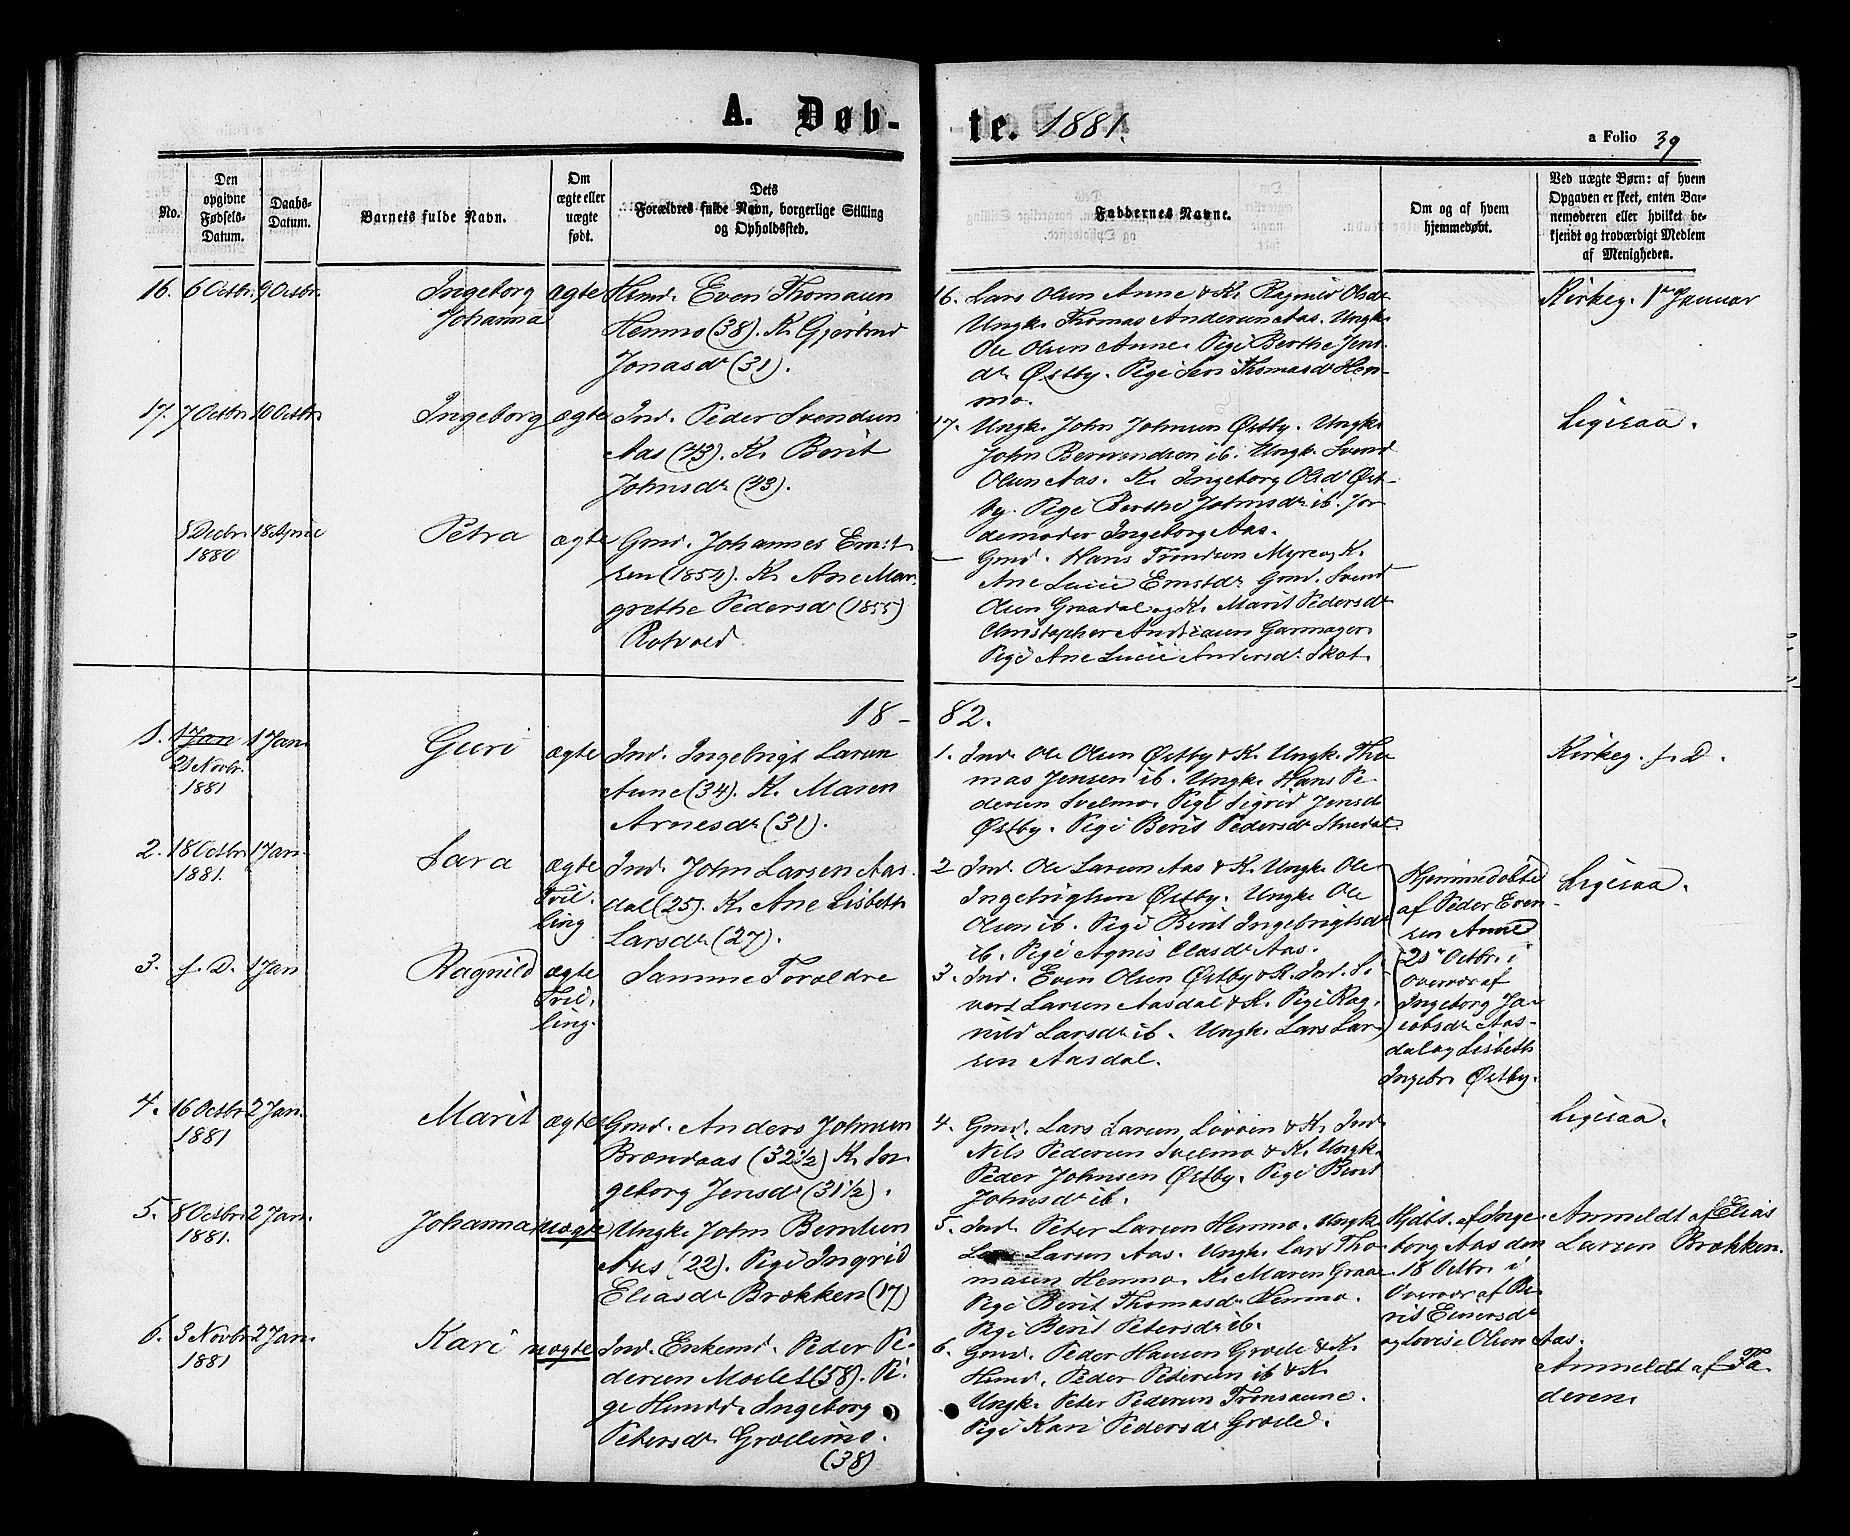 A. Døb-
te. 1881.
a Folio 39
No.
Den opgivne Fødsels-Datum.
Daabs-Datum.
Barnets fulde Navn.
Om ægte eller uægte født.
Dets Forældres fulde Navn, borgerlige Stilling og Opholdssted.
Faddernes Navne.
Om og af hvem hjemmedøbt.
Ved uægte Børn: af hvem Opgaven er skeet, enten Barnemoderen eller hvilket bekjendt og troværdigt Medlem af Menigheden.
16. 6 Octbr. 9 Octbr. Ingeborg ægte Huusd. Even Thomasen
Johanna
Henmo (38). K. Gjertrud
Jonasdr (31).
16. Lars Olsen Aune & K. Ragnild Olsdr
Ungk. Thomas Andersen Aas. Ungk.
Ole Olsen Aune. Pige Berthe Jens
dr Østby. Pige Siri Thomasdr Hen-
mo.
Kirkeg. 1r Januar
17. 7 Octbr 10 Octbr. Ingeborg ægte Ind. Peder Svendsen
Aas (43). K. Berit
Johnsdr (43).
17. Ungk. John Johnsen Østby. Ungk.
John Berntsen ib. Ungk. Svend
Olsen Aas. K. Ingeborg Olsdr Øst-
by. Pige Berthe Johnsdr ib. Jor
demoder Ingeborg Aas.
Ligesaa.
8 Decbr 18 April
1880
Petra ægte Gmd. Johannes Ernst
sen (1854). K. Ane Mar-
grethe Pedersdr (1855)
Rotvold.
— Gmd. Hans Trondsen Myre og K.
Ane Lucie Ernstdr Gmd. Svend
Olsen Graadal og K. Marit Pedersdr
Christopher Andreasen Garmager
Pige Ane Lucie Andersdr Skot.
18-82.
1. 1 Jan 1 Jan.
21 Novbr.
1881
Guri ægte Ind. Ingebrigt Larsen
Aune (34). K. Maren
Arnesdr (31).
1. Ind. Ole Olsen Østby & K. Ungk. Tho
mas Jensen ib. Ungk. Hans Pe-
dersen Svelmo. Pige Sigrid Jensdr
Østby. Pige Berit Pedersdr Stuedal
Kirkeg. s. D.
2. 18 Octbr 1 Jan.
1881.
Sara ægte Tvilling
Ind. John Larsen Aas-
dal (25). K. Ane Lisbeth
Larsdr (27).
2 Ind. Ole Larsen Aas & K. Ungk. Ole
Ingebrigtsen Østby. Ungk. Ole
Olsen ib. Pige Berit Ingebrigtsdr
ib. Pige Agnis Clasdr Aas.
Hjemmedøbte
af Peder Even-
sen Aune
20 Octbr. i
Overvær af
Ingeborg Ja-
cobsdr Aas-
dal og Lisbeth
Ingebr. Østby.
Ligesaa.
3. s. D. 1 Jan Ragnild ægte Tvilling. Samme Forældre
3. Ind. Even Olsen Østby & K. Ind. Si-
vert Larsen Aasdal & K. Pige Rag-
nild Larsdr ib. Ungk. Lars Lar-
sen Aasdal.
4. 16 Octbr 2 Jan.
1881
Marit ægte Gmd. Anders Johnsen
Brændaas (32½) K. In
geborg Jensdr (31½).
4. Gmd. Lars Larsen Løvøen & K. Ind.
Nils Pedersen Svelmo & K. Ungk.
Peder Johnsen Østby. Pige Berit
Johnsdr ib.
Ligesaa.
5. 8 Octbr 2 Jan.
1881.
Johanna uægte Ungk. John Berntsen
Aas (22). Pige Ingrid
Eliasdr Brækken (17)
5. Ind. Peter Larsen Henmo. Ungk.
Lars Larsen Aas. Ungk. Lars Tho-
masen Henmo. K. Maren Graa
Pige Berit Thomasdr Henmo.
Pige Berit Petersdr ib.
Hjdbt. af Inge
borg Aas den
18 Octbr. i
Overvær af Be-
rit Einersdr
og Lovise Olsen Aas.
Anmeldt af Elias
Larsen Brækken.
6. 3 Novbr 2 Jan.
1881
Kari uægte Ind. Enkemd. Peder Pe-
dersen Moslet (58). Pi-
ge Huusd. Ingeborg
Petersdr Græslimo.
(38)
6. Gmd. Peder Hansen Græsli & K.
Huusd. Peder Petersen ib & K.
Ungk. Peter Pedersen Trønsaune.
Pige Kari Pedersdr Græsli.
Anmeldt af Fa-
deren.